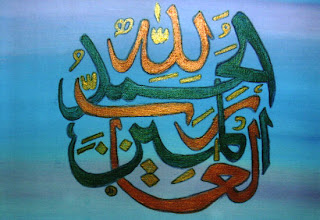 الحمد لله
رب
العالمين